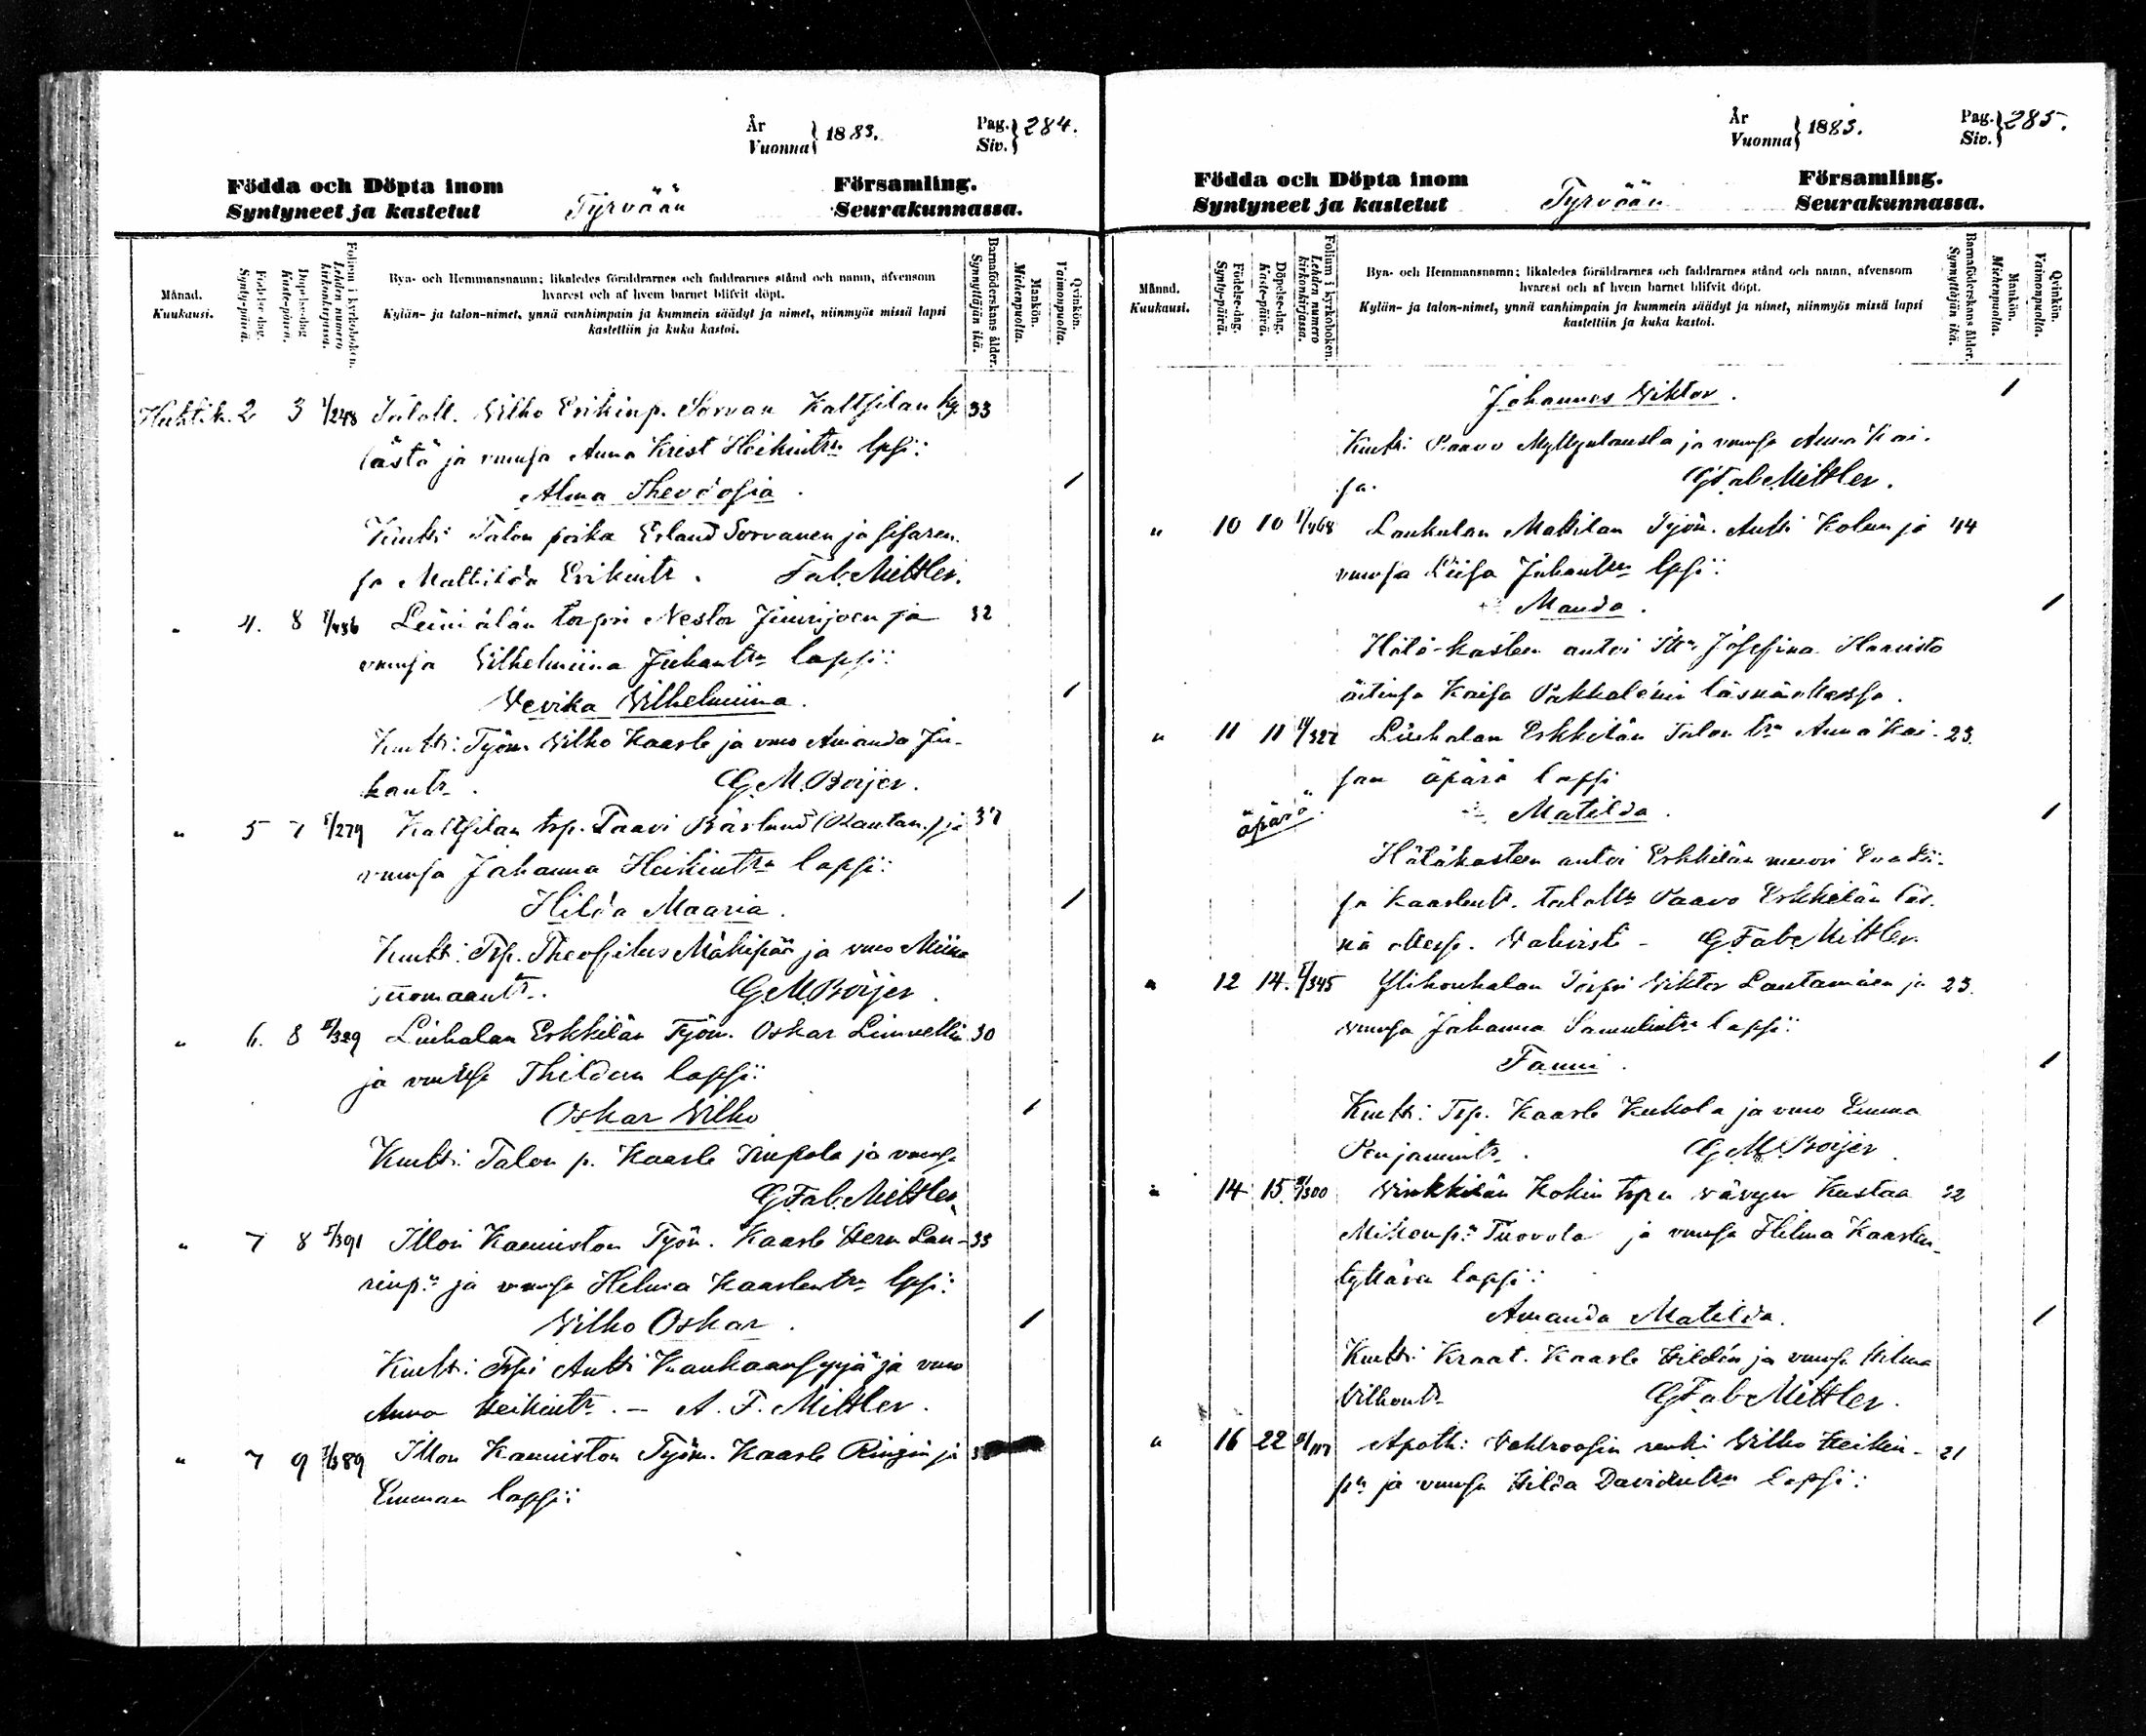 År
Vuonna } 1883.
Pag.
Siv. } 284.
Födda och Döpta inom Församling.
Syntyneet ja kastetut Tyrvään Seurakunnassa.
Månad.
Kuukausi.
Födelse-dag.
Synty-päivä.
Döpelse-dag.
Kaste-päivä.
Folium i kyrkoboken.
Lehden numero kirkonkirjassa.
Bya- och Hemmansnamn; likaledes föräldrarnes och faddrarnes stånd och namn, äfvensom
hvarest och af hvem barnet blifvit döpt.
Kylän- ja talon-nimet, ynnä vanhimpain ja kummein säädyt ja nimet, niinmyös missä lapsi
kastettiin ja kuka kastoi.
Barnaföderskans ålder.
Synnyttäjän ikä.
Mankön.
Miehenpuolta.
Qvinkön.
Vaimonpuolta.
Huhtik. 2 3 1/248 Taloll. Wilho Erikinp. Sorvan Kaltsilan ky- 33
lästä ja vmnsa Anna Krest Heikintrn lpsi:
Alma Theodosia. /
Kmtti: Talon poika Erland Sorvanen ja sisaren-
sa Mathilda Erikintr. Fab. Mittler.
" 4. 8 Leiniälän torpri Nestor Junnijoen ja 32
vmnsa Wilhelmiina Juhantrn lapsi:
Wevika Wilhelmiina. /
Kmtti: Työm. Wilho Kaarle ja vmo Amanda Ju-
hantr. G. M. Boijer.
" 5 7 1/279 Kaltsilan trp. Taavi Bärlund (Rautan.) ja 37
vmnsa Johanna Heikintrn lapsi:
Hilda Maaria. /
Kmtt: Trp. Theofilus Mäkipää ja vmo Miina
Tuomaantr. G M Boijer.
" 6. 8 Liuhalan Erkkilän Työm. Oskar Linnellin 30
ja vmnsa Thildan lapsi:
Oskar Wilho /
Kmtti: Talon p. Kaarle ja vmnsa
G. Fab. Mittler.
" 7 8 1/391 Illon Kanniston Työm. Kaarle Herm Lau- 33
rinp.n ja vmnsa Helma Kaarlentrn lpsi:
Wilho Oskar. /
Kmtti: Trpi Antti ja vmo
Anna Heikintr. – A. F. Mittler.
" 7 9 1/389 Illon Kanniston Työm. Kaarle Ringin ja
Emman lapsi:
År
Vuonna } 1883.
Pag.
Siv. } 285.
Födda och Döpta inom Församling.
Syntyneet ja kastetut Tyrvään Seurakunnassa.
Månad.
Kuukausi.
Födelse-dag.
Synty-päivä.
Döpelse-dag.
Kaste-päivä.
Folium i kyrkoboken.
Lehden numero kirkonkirjassa.
Bya- och Hemmansnamn; likaledes föräldrarnes och faddrarnes stånd och namn, äfvensom
hvarest och af hvem barnet blifvit döpt.
Kylän- ja talon-nimet, ynnä vanhimpain ja kummein säädyt ja nimet, niinmyös missä lapsi
kastettiin ja kuka kastoi.
Barnaföderskans ålder.
Synnyttäjän ikä.
Mankön.
Miehenpuolta.
Qvinkön.
Vaimonpuolta.
Johannes Wiktor. /
Kmtt: Paavo ja vmnsa Anna Kai-
sa. G Fab. Mittler.
" 10 10 Laukulan Mattilan Työm. Antti Kolun ja 44
vmnsa Liisa Juhantrn lpsi:
Manda. /
Hätä-kasteen antoi Josefina Haavisto
äitinsä Kaisa läsnäollessa.
" 11 11 Liuhalan Erkkilän Talon trn Anna Kai- 23.
san äpärä lapsi
äpärä. Matilda. /
Hätäkasteen antoi Erkkilän muori Eva Lii-
sa Kaarlentr. Paavo Erkkilän läs-
nä olless. Vahvisti – G. Fab. Mittler.
" 12 14. 1/345 Ylihouhalan Torpri Wiktor Lautamäen ja 23.
vmnsa Johanna Samulintrn lapsi:
Fanni. /
Kmtti: Trp. Kaarle Kukola ja vmo Emma
Penjamintr. G. M. Boijer
" 14 15. Vinkkilän Kokin trpn vävyn Kustaa 22
Mikonp.n Tuovola ja vmnsa Hilma Kaarlen-
tyttären lapsi:
Amanda Matilda. /
Kmtti: Kraat. Kaarle Hildén ja vmnsa Hilma
Vilhontr. G Fab. Mittler.
" 16 22 Apoth: Wahlroosin renki Wilho Heikin- 21
p.n ja vmnsa Hilda Davidintrn lapsi: